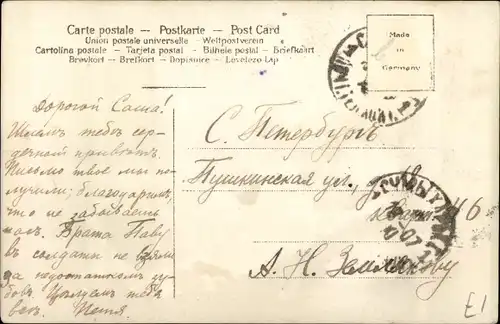 Carte postale – Postkarte – Post Card
Union postale universelle – Weltpostverein
Cartolina postale – Tarjeta postal – Bilhete postal – Briefkaart
Brevkort – Brefkort – Dopisnice – Levelezo Lap
Made
in
Germany
Дорогой Саша!
Шлемъ тебѣ сер-
дечный привѣтъ.
Письмо твое мы по-
лучили; благодаримъ
что не забываешь
насъ. Брата Павву
въ солдаты не взяли
за недостаткомъ зу-
бовъ. Цѣлуемъ тебя
всѣ. Петя.
С. Петербургъ
Пушкинская ул., д.
кварт. 46
А. Н. Землякову
07
£1